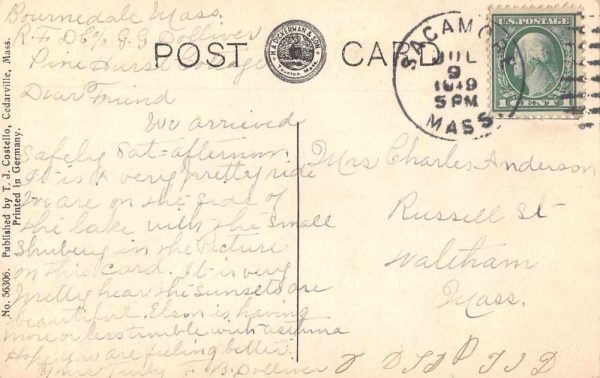 Bournedale Mass.
R.F.D. 6% G.G. Dolliver
Pine Hurst Cottage
Dear Friend
We arrived
Safely Sat= afternoon.
It is a very pretty ride
We are on the side of
the lake with the small
Shrubery in the Picture
on this card. It is very
pretty hear the sunsets are
beautiful. Elsin is having
more or less trouble with asthma
Hope you are feeling better.
Yours Truly B. Dolliver
POST CARD
H. A. DICKERMAN & SON
Taunton, Mass.
SAGAMORE
JUL
9
5 PM
MASS.
U.S. POSTAGE
1 CENT 1
Mrs Charles Anderson
Russell St
Waltham
Mass.
No. 56306. Published by T. J. Costello, Cedarville, Mass.
Printed in Germany.